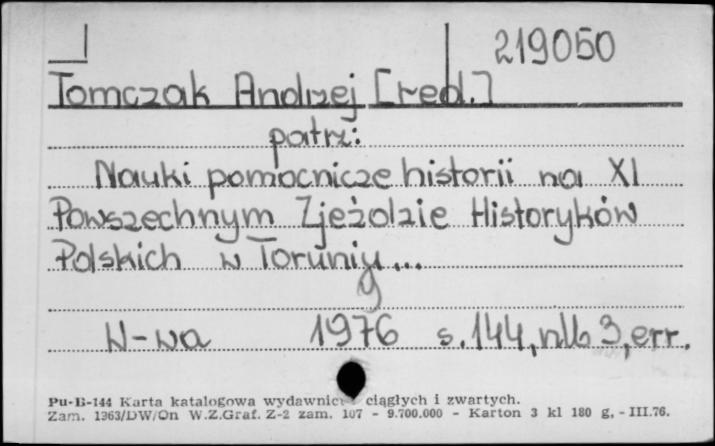 219050
Tomczak Andrzej [red.]
patrz:
Nauki pomocnicze historii na XI
Powszechnym Zjeździe Historyków
Polskich w Toruniu...
W-wa 1976 s.144, nlb 3, err.
Pu-B-144 Karta katalogowa wydawnict ciągłych i zwartych.
Zam. 1363/DW/On W.Z.Graf. Z-2 zam. 107 - 9.700.000 - Karton 3 kl 180 g. - III.76.